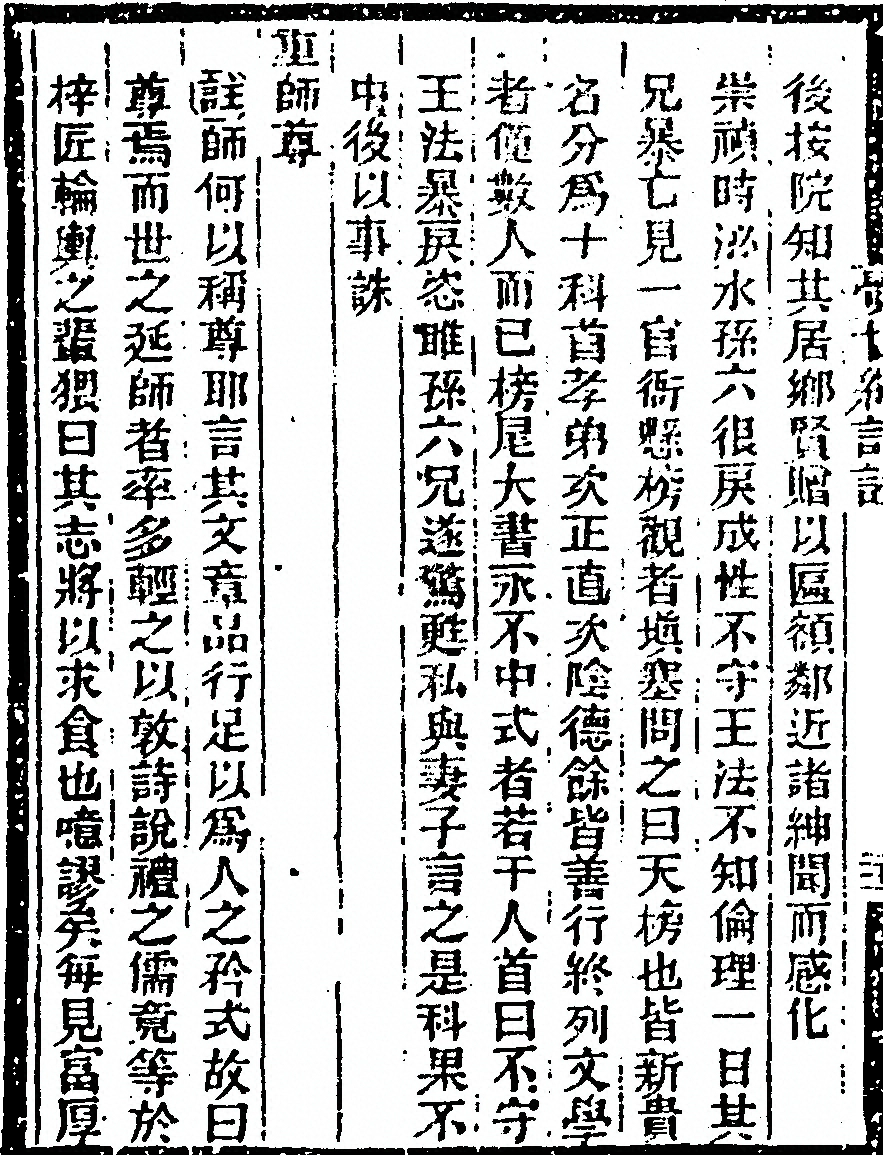 後按院知其居鄉賢贈以區額鄰近諸紳聞而感化
崇禎時泌水孫六很戾成性不守王法不知倫理一日其
兄暴亡見一官衙懸榜觀者塡塞問之曰天榜也皆新貴
名分爲十科首孝弟次正直次陰德餘皆善行終列文學
者僅數人而已榜尾大書永不中式者若干人首曰不守
王法暴戾恣睢孫六兄遂驚甦私與妻子言之是科果不
中後以事誅
重師尊
註師何以稱尊耶言其文章品行足以爲人之矜式故曰
尊焉而世之延師者率多輕之以敦詩說禮之儒竟等於
梓匠輪輿之輩猥曰其志將以求食也噫謬矣每見富厚